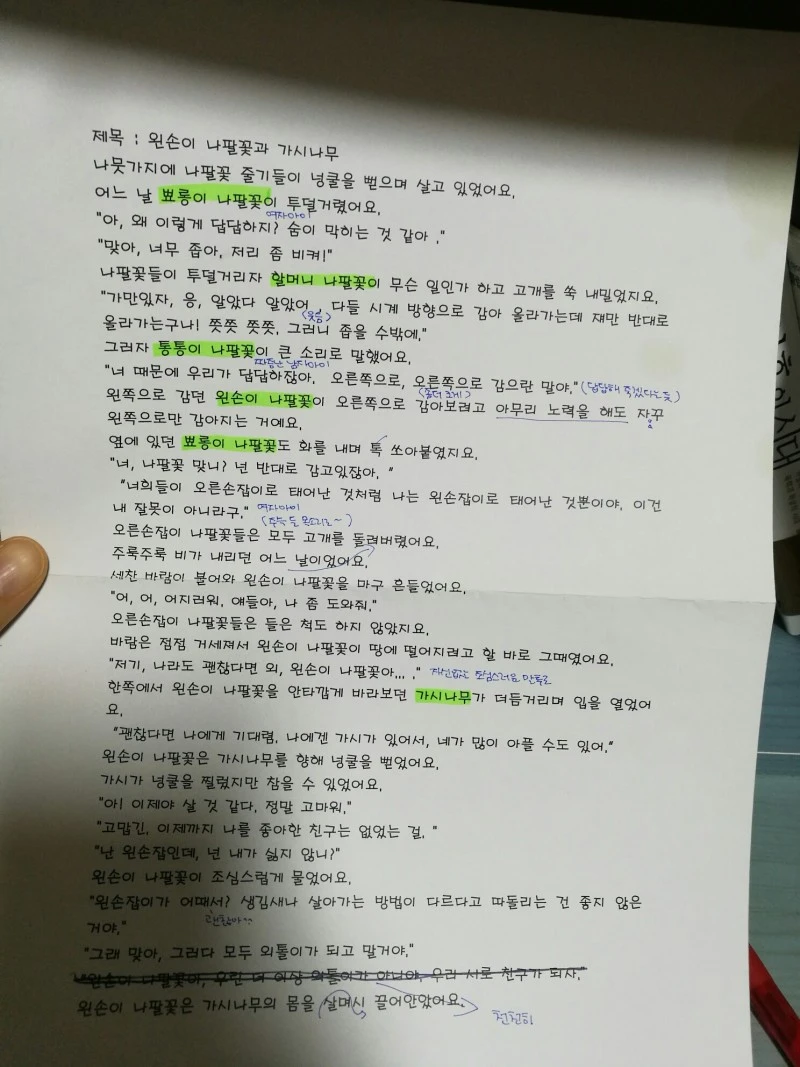 제목 : 왼손이 나팔꽃과 가시나무
나뭇가지에 나팔꽃 줄기들이 넝쿨을 뻗으며 살고 있었어요.
어느 날 뾰롱이 나팔꽃이 투덜거렸어요.
여자아이
"아, 왜 이렇게 답답하지? 숨이 막히는 것 같아 ."
"맞아, 너무 좁아, 저리 좀 비켜!"
나팔꽃들이 투덜거리자 할머니 나팔꽃이 무슨 일인가 하고 고개를 쑥 내밀었지요.
"가만있자, 응, 알았다 알았어 , 다들 시계 방향으로 감아 올라가는데 쟤만 반대로
(웃음)
올라가는구나! 쯧쯧 쯧쯧, 그러니 좁을 수밖에."
그러자 통통이 나팔꽃이 큰 소리로 말했어요.
남자아이
"너 때문에 우리가 답답하잖아. 오른쪽으로, 오른쪽으로 감으란 말야." (답답해 죽겠다는 듯)
왼쪽으로 감던 왼손이 나팔꽃이 오른쪽으로 감아보려고 아무리 노력을 해도 자꾸
왼쪽으로만 감아지는 거예요.
옆에 있던 뾰롱이 나팔꽃도 화를 내며 톡 쏘아붙였지요.
"너, 나팔꽃 맞니? 넌 반대로 감고있잖아. "
"너희들이 오른손잡이로 태어난 것처럼 나는 왼손잡이로 태어난 것뿐이야. 이건
내 잘못이 아니라구." 여자아이
오른손잡이 나팔꽃들은 모두 고개를 돌려버렸어요.
주룩주룩 비가 내리던 어느 날이었어요.
세찬 바람이 불어와 왼손이 나팔꽃을 마구 흔들었어요.
"어, 어, 어지러워, 얘들아, 나 좀 도와줘."
오른손잡이 나팔꽃들은 들은 척도 하지 않았지요.
바람은 점점 거세져서 왼손이 나팔꽃이 땅에 떨어지려고 할 바로 그때였어요.
"저기, 나라도 괜찮다면 외, 왼손이 나팔꽃아... ." 자신없는 조심스러운 말투로
한쪽에서 왼손이 나팔꽃을 안타깝게 바라보던 가시나무가 더듬거리며 입을 열었어
요.
"괜찮다면 나에게 기대렴. 나에겐 가시가 있어서, 네가 많이 아플 수도 있어."
왼손이 나팔꽃은 가시나무를 향해 넝쿨을 뻗었어요.
가시가 넝쿨을 찔렀지만 참을 수 있었어요.
"아! 이제야 살 것 같다. 정말 고마워."
"고맙긴, 이제까지 나를 좋아한 친구는 없었는 걸. "
"난 왼손잡인데, 넌 내가 싫지 않니?"
왼손이 나팔꽃이 조심스럽게 물었어요.
"왼손잡이가 어때서? 생김새나 살아가는 방법이 다르다고 따돌리는 건 좋지 않은
거야."
"그래 맞아, 그러다 모두 외톨이가 되고 말거야."
"왼손이 나팔꽃아, 우린 더 이상 외톨이가 아니야, 우리 서로 친구가 되자."
왼손이 나팔꽃은 가시나무의 몸을 살며시 끌어안았어요.
천천히